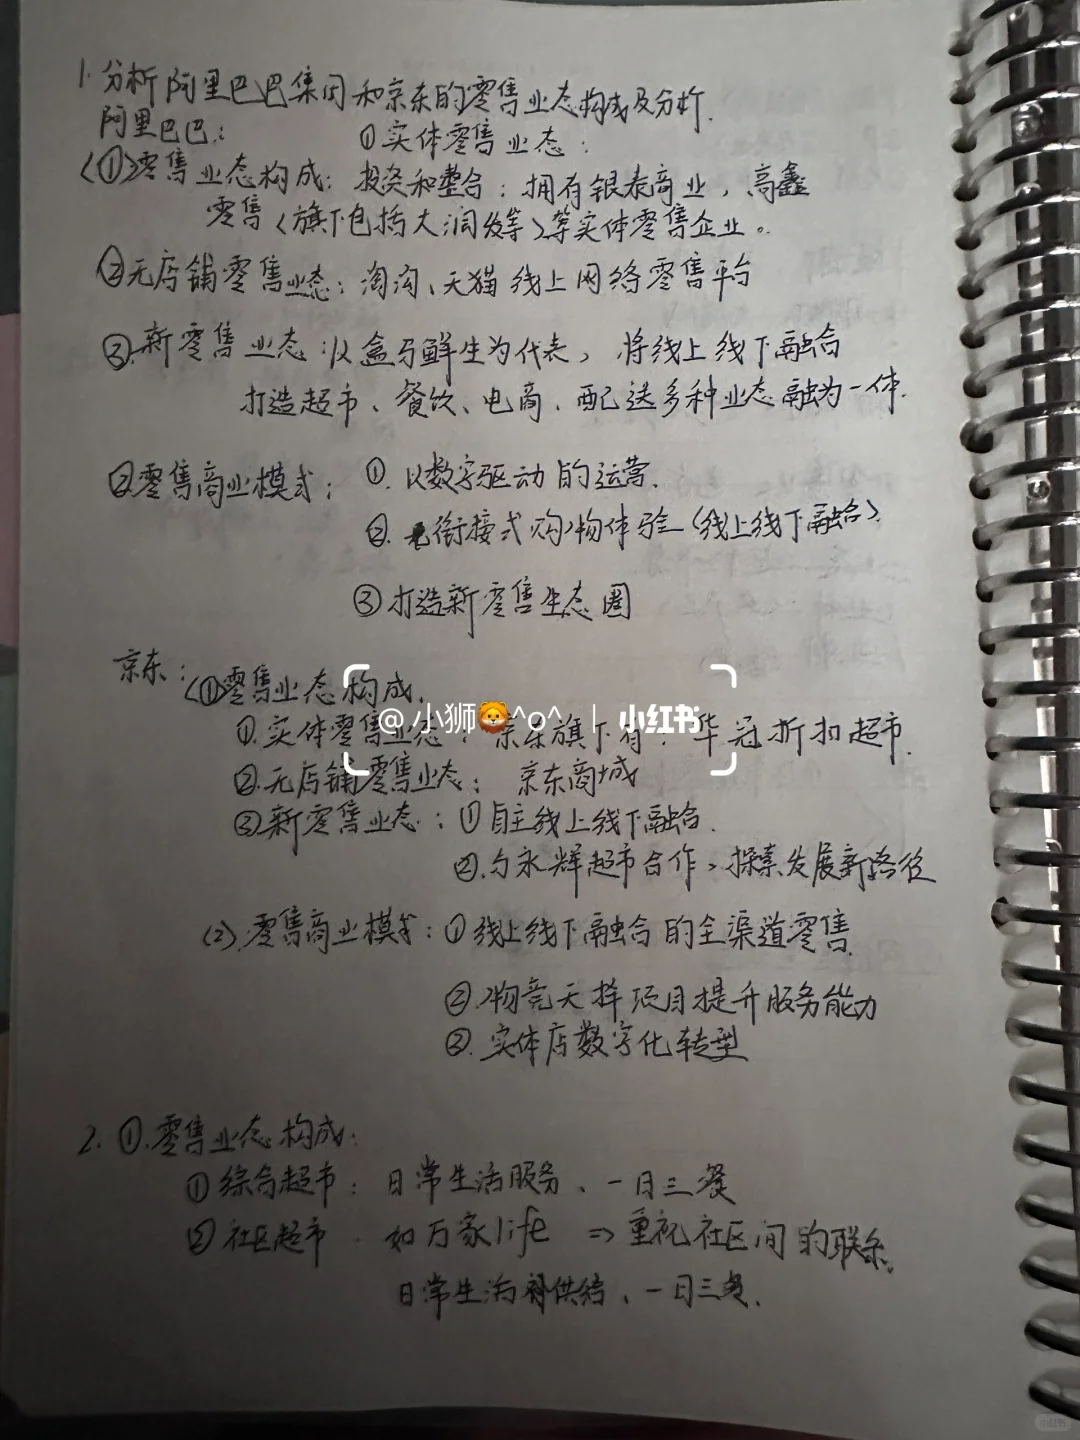 1.分析阿里巴巴集团和京东的零售业态构成及分析.
阿里巴巴: ①实体零售业态:
<①>零售业态构成: 投资和整合: 拥有银泰商业, 高鑫
零售<旗下包括大润发等>等实体零售企业。
②无店铺零售业态: 淘沟、天猫线上网络零售平台
③.新零售业态: 以盒马鲜生为代表, 将线上线下融合
打造超市、餐饮、电商、配送多种业态融为一体.
②零售商业模式: ①. 以数字驱动的运营.
②. 衔接式购物体验<线上线下融合>.
③打造新零售生态圈
京东: <①零售业态构成.
@小狮🦁^o^ | 小红书
①.实体零售业态: 京东旗下有: 华冠折扣超市.
②.无店铺零售业态: 京东商城
③新零售业态: ①自主线上线下融合.
②.与永辉超市合作,探索发展新路径
(2).零售商业模式: ①线上线下融合的全渠道零售.
②.物竞天择项目提升服务能力
③. 实体店数字化转型
2. ①.零售业态构成:
①综合超市: 日常生活服务、一日三餐
②社区超市. 如万家life ⇒重视社区间的联系.
日常生活补供给、一日三餐.
小红书